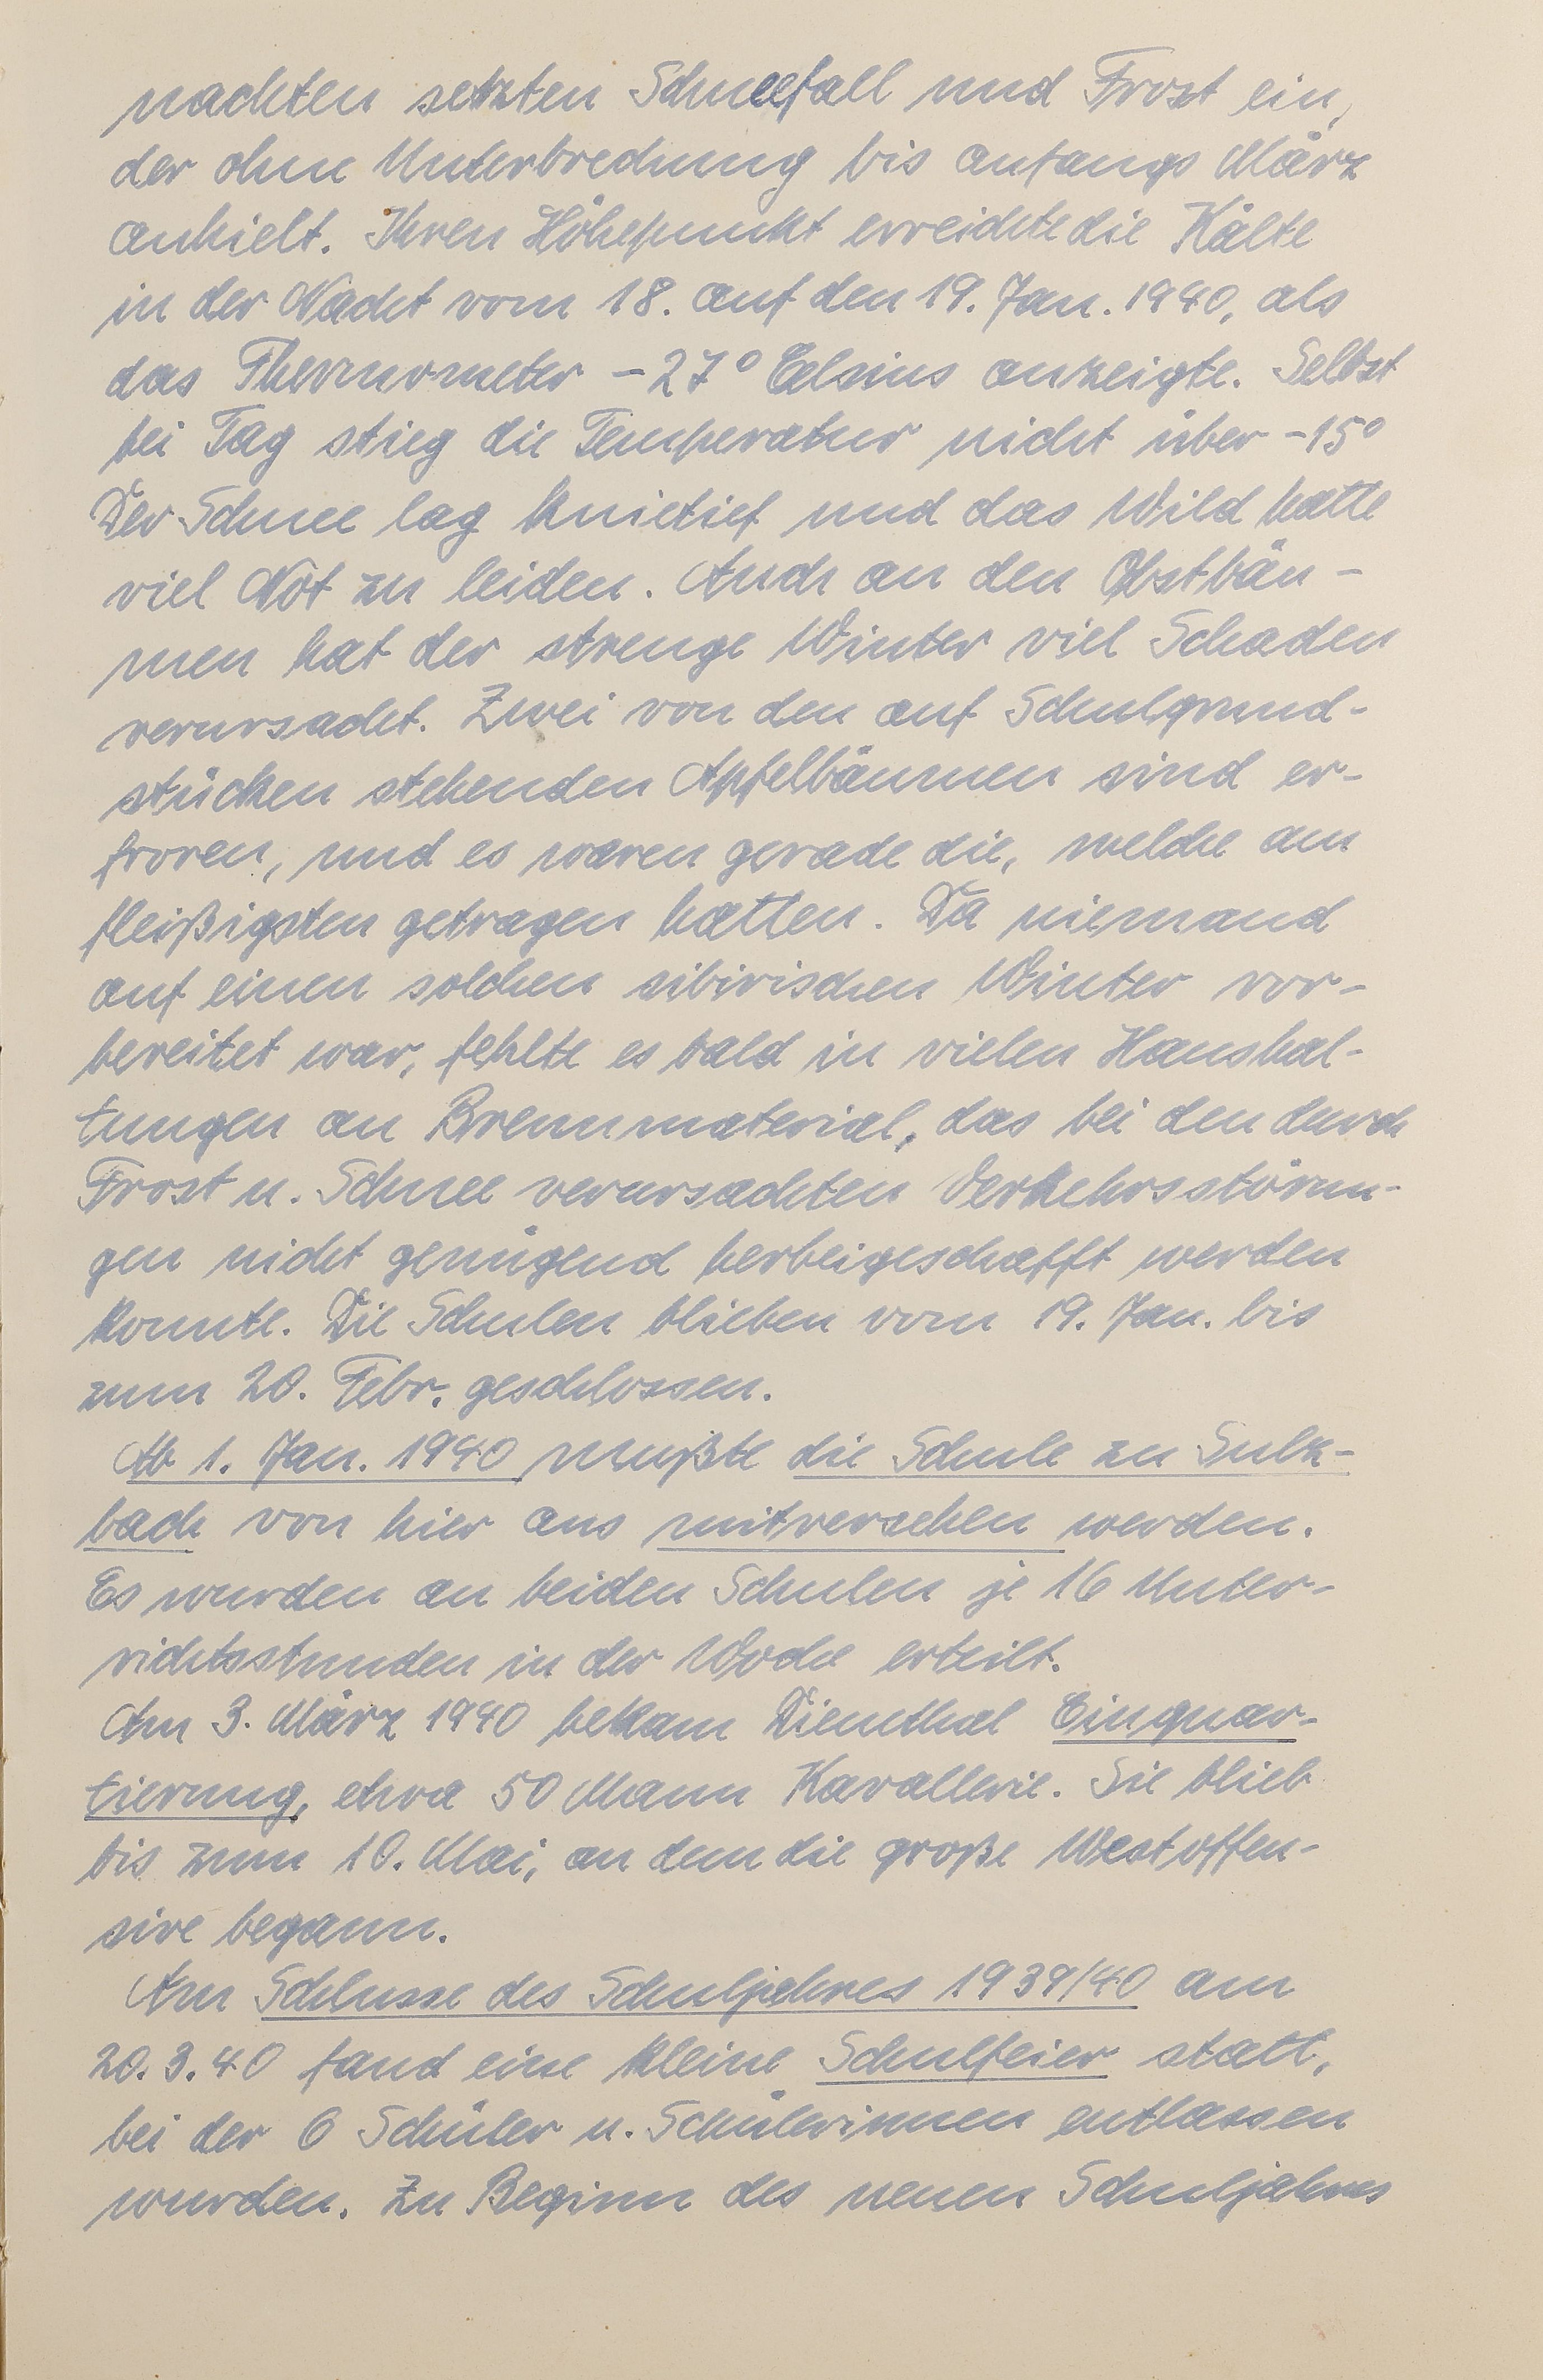 nachten setzten Schneefall und Frost ein,
der ohne Unterbrechung bis anfangs März
anhielt. Ihren Höhepunkt erreichte die Kälte
in der Nacht vom 18. auf den 19. Jan. 1940, als
das Thermometer -27° Celsius anzeigte. Selbst
bei Tag stieg die Temperatur nicht über -15°
Der Schnee lag knietief und das Wild hatte
viel Not zu leiden. Auch an den Obstbäu-
men hat der strenge Winter viel Schaden
verursacht. Zwei von den auf Schulgrund-
stücken stehenden Apfelbäumen sind er-
froren, und es waren gerade die, welche am
fleißigsten getragen hatten. Da niemand
auf einen solchen sibirischen Winter vor-
bereitet war, fehlte es bald in vielen Haushal-
tungen an Brennmaterial, das bei den durch
Frost u. Schnee verursachten Verkehrsstörun-
gen nicht genügend herbeigeschafft werden
konnte. Die Schulen blieben vom 19. Jan. bis
zum 20. Febr. geschlossen.
Ab 1. Jan. 1940 mußte die Schule zu Sulz-
bach von hier aus mitversehen werden.
Es wurden an beiden Schulen je 16 Unter-
richtsstunden in der Woche erteilt.
Am 3. März 1940 bekam Dienthal Einquar-
tierung, etwa 50 Mann Kavallerie. Sie blieb
bis zum 10. Mai, an dem die große Westoffen-
sive begann.
Am Schlusse des Schuljahres 1939/40 am
20.3.40 fand eine kleine Schulfeier statt,
bei der 6 Schüler u. Schülerinnen entlassen
wurden. Zu Beginn des neuen Schuljahres